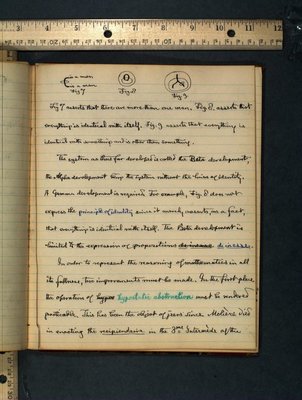 is a man
is a man
Fig 7
Fig. 8
Fig 9.
Fig 7 asserts that there are more than one man. Fig. 8. asserts that
everything is identical with itself. Fig. 9. asserts that everything is
identical with something and is other than something.
The system as thus far developed is called the Beta development,
the Alpha development being the system without the lines of identity.
A Gamma development is required. For example, Fig 8 does not
express the principle of identity since it merely asserts, as a fact,
that everything is identical with itself. The Beta development is
limited to the expression of propositions de inesse.
In order to represent the reasoning of mathematics in all
its fullness, two improvements must be made. In the first place
the operation of hypos hypostatic abstraction must be rendered
practicable. This has been the object of jeers since Molière died
in enacting the recipiendaire in the 3me Intermède of the